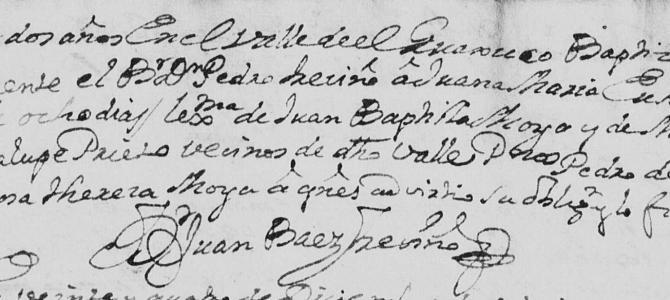 dos años En el Valle de el Guaxuco Baptizo
ente el Br. Dn Pedro treviño â Juana Maria
ocho dias lexma de Juan Baptista Moya y de
alupe Prieto vecinos de dho Valle P nos Pedro de
na therera Moya â qnes advirtio su oblign y lo
Juan Baez treviño
veinte y quatro de Diciem